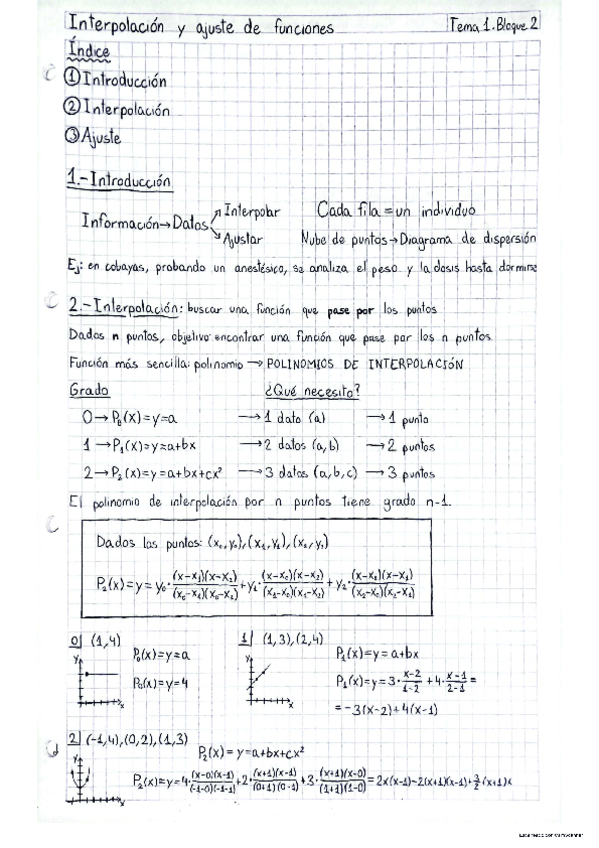 Interpolación y ajuste de funciones Tema 1. Bloque 2
Índice
① Introducción
② Interpolación
③ Ajuste
1.- Introducción
Información → Datos ↗ Interpolar Cada fila = un individuo
↘ Ajustar Nube de puntos → Diagrama de dispersión
Ej: en cobayas, probando un anestésico, se analiza el peso y la dosis hasta dormirse
2.- Interpolación: buscar una función que pase por los puntos
Dados n puntos, objetivo: encontrar una función que pase por los n puntos
Función más sencilla: polinomio → POLINOMIOS DE INTERPOLACIÓN
Grado ¿Qué necesito?
0 → P₀(x)=y=a → 1 dato (a) → 1 punto
1 → P₁(x)=y=a+bx → 2 datos (a,b) → 2 puntos
2 → P₂(x)=y=a+bx+cx² → 3 datos (a,b,c) → 3 puntos
El polinomio de interpolación por n puntos tiene grado n-1.
Dados los puntos: (x₀,y₀),(x₁,y₁),(x₂,y₂)
P₂(x)=y=y₀·(x-x₁)(x-x₂)/(x₀-x₁)(x₀-x₂)+y₁·(x-x₀)(x-x₂)/(x₁-x₀)(x₁-x₂)+y₂·(x-x₀)(x-x₁)/(x₂-x₀)(x₂-x₁)
0| (1,4)
P₀(x)=y=a
P₀(x)=y=4
y
x
1| (1,3),(2,4)
P₁(x)=y=a+bx
P₁(x)=y=3·x-2/1-2+4·x-1/2-1=
=-3(x-2)+4(x-1)
y
x
2| (-1,4),(0,2),(1,3)
P₂(x)=y=a+bx+cx²
P₂(x)=y=4·(x-0)(x-1)/(-1-0)(-1-1)+2·(x+1)(x-1)/(0+1)(0-1)+3·(x+1)(x-0)/(1+1)(1-0)=2x(x-1)-2(x+1)(x-1)+3/2(x+1)x
y
x